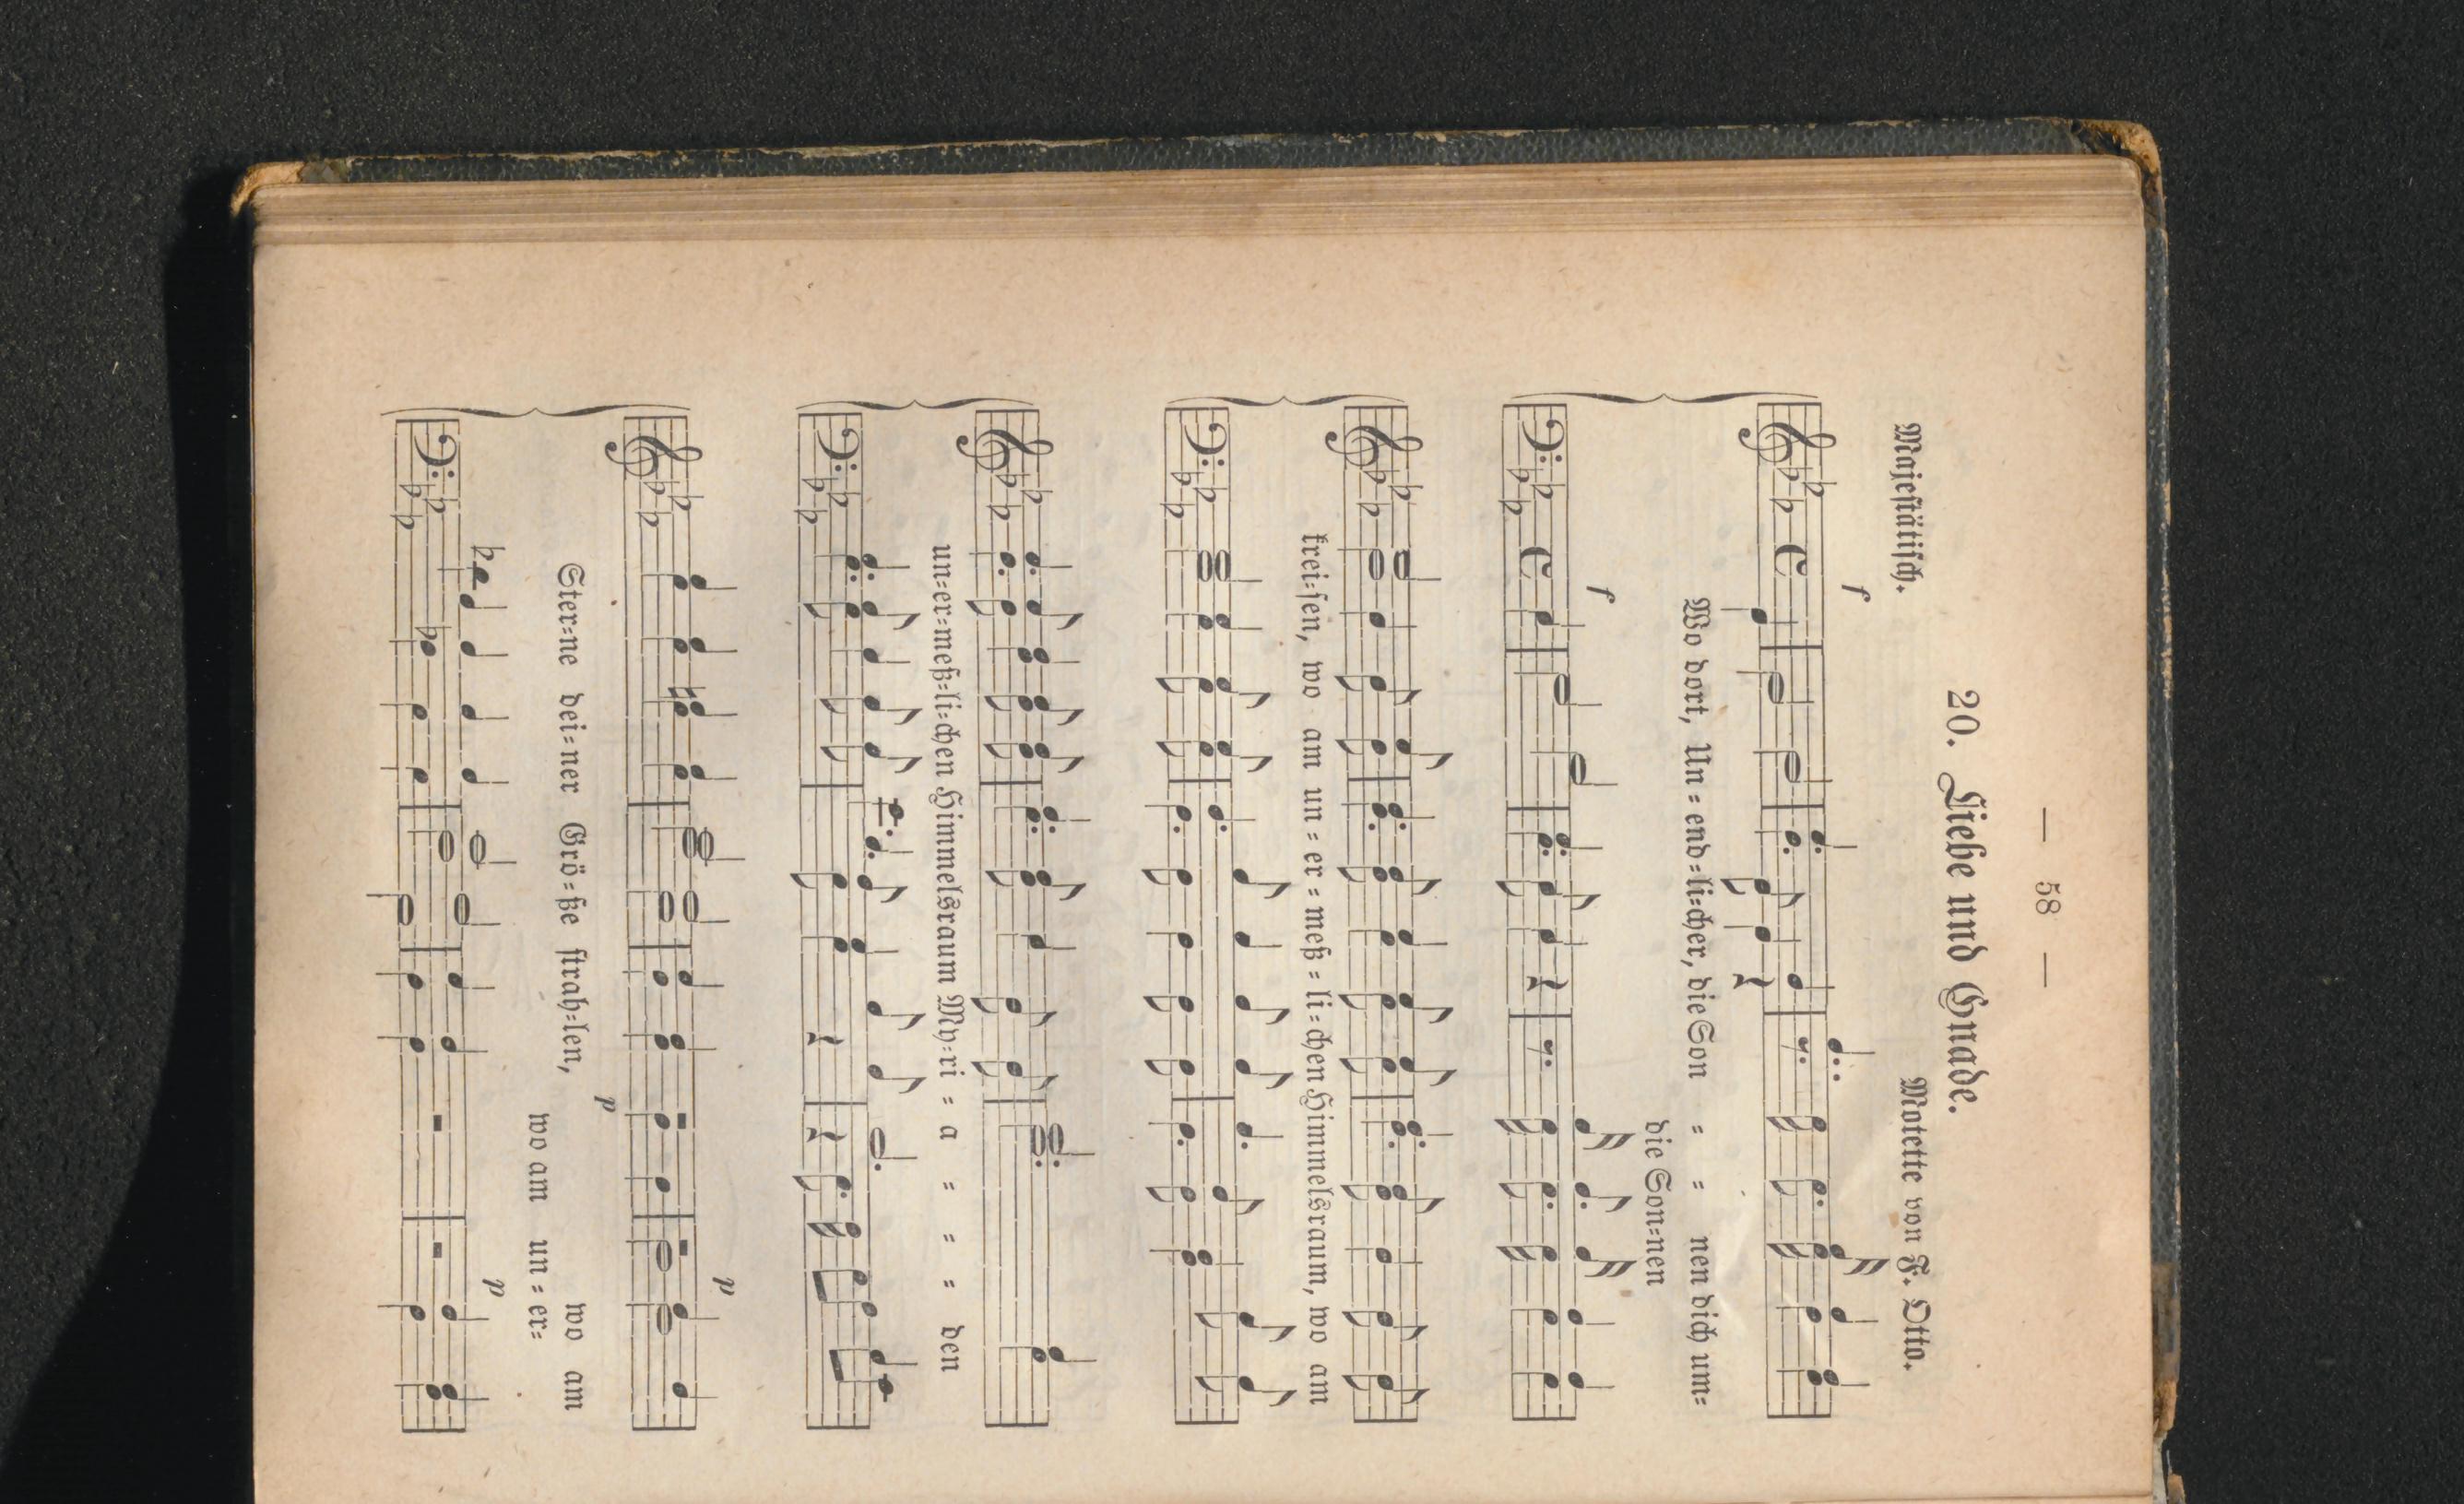 — 58 —
20. Liebe und Gnade.
Majestätisch. Motette von F. Otto.
f
Wo dort, Un-end-li-cher, die Son - - nen dich um-
die Son-nen
f
krei-sen, wo am un-er-meß-li-chen Himmelsraum, wo am
un-er-meß-li-chen Himmelsraum My-ri-a - - - den
p
p
Ster-ne dei-ner Grö-ße strah-len, wo am
wo am un-er-
p